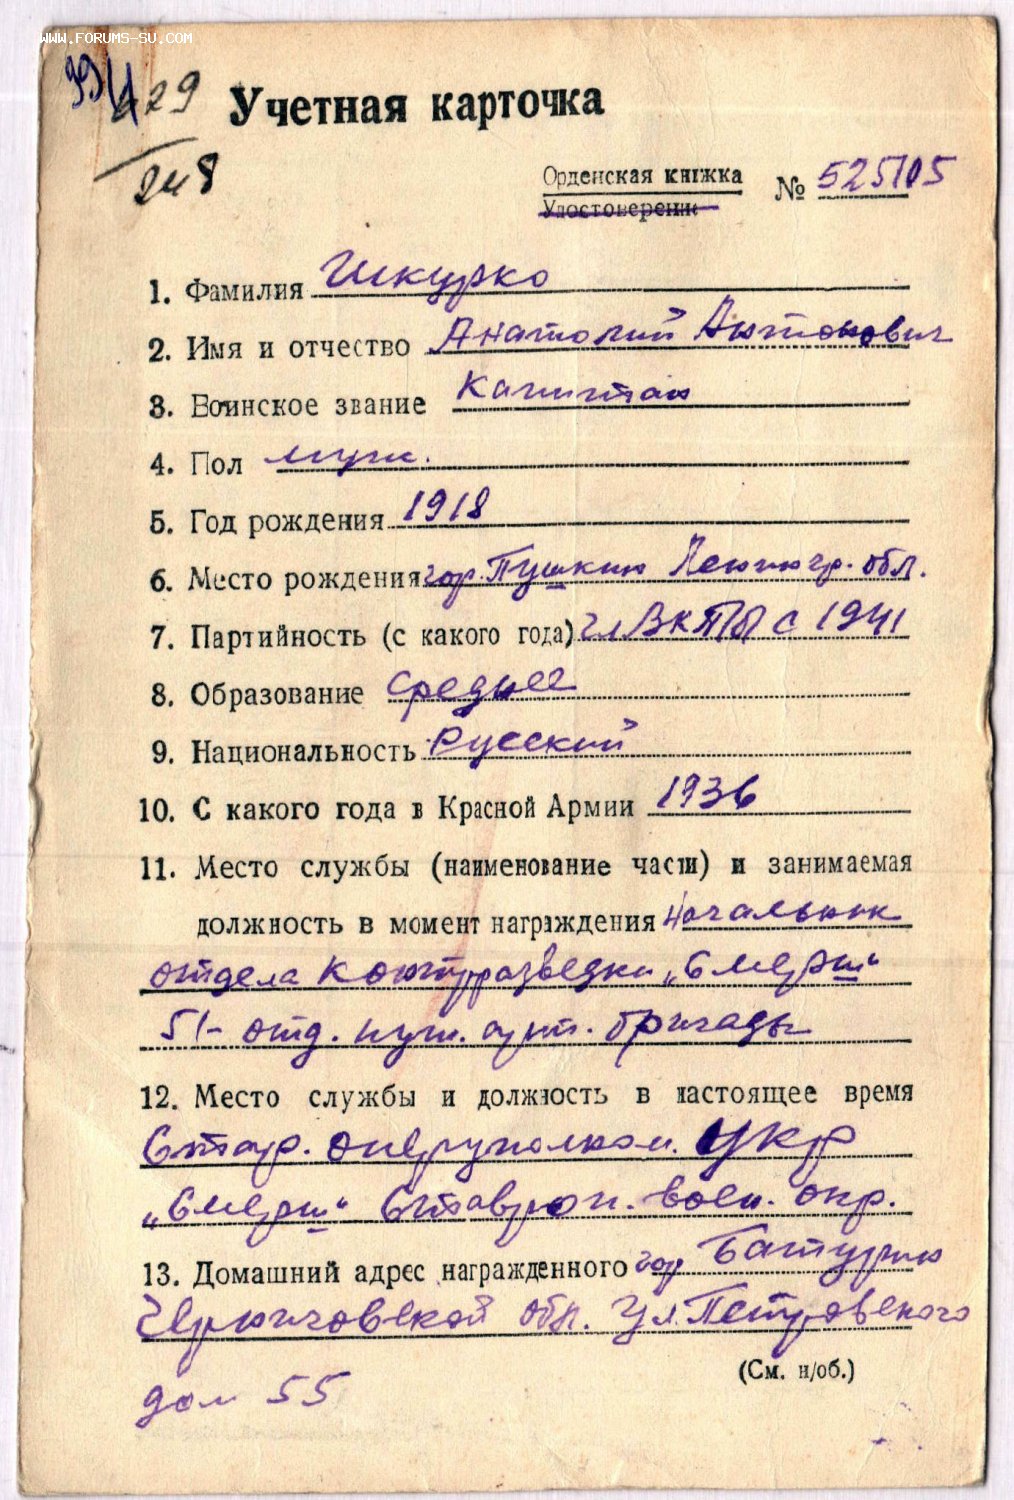 WWW.FORUMS-SU.COM
Учетная карточка
Орденская книжка № 525105
Удостоверение
1. Фамилия Шкурко
2. Имя и отчество Анатолий Антонович
3. Воинское звание Капитан
4. Пол муж.
5. Год рождения 1918
6. Место рождения гор. Пушкин Ленингр. обл.
7. Партийность (с какого года) чл ВКП(б) с 1941
8. Образование среднее
9. Национальность Русский
10. С какого года в Красной Армии 1936
11. Место службы (наименование части) и занимаемая
должность в момент награждения Начальник
отдела контрразведки „Смерш“
51- отд. пуш. арт. бригады
12. Место службы и должность в настоящее время
Стар. оперуполном. УКР
„Смерш“ Ставроп. воен. окр.
13. Домашний адрес награжденного гор Батурин
Черниговской обл. ул. Петровского
(См. н/об.)
дом 55